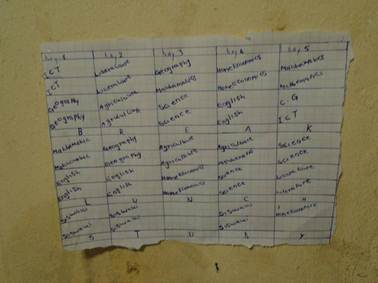 Day 1 Day 2 Day 3 Day 4 Day 5
ICT Literature Geography Home economics Mathematics
ICT Literature Mathematics Home economics Mathematics
Geography Agriculture Science English C.G
Geography Agriculture Science English ICT
B R E A K
Mathematics Geography Agriculture Agriculture Science
Mathematics Geography Agriculture Mathematics Science
English English Home economics Science Literature
English English Home economics Science Literature
L U N C H
Siswati Siswati Siswati
Siswati Siswati Siswati
S T U D Y